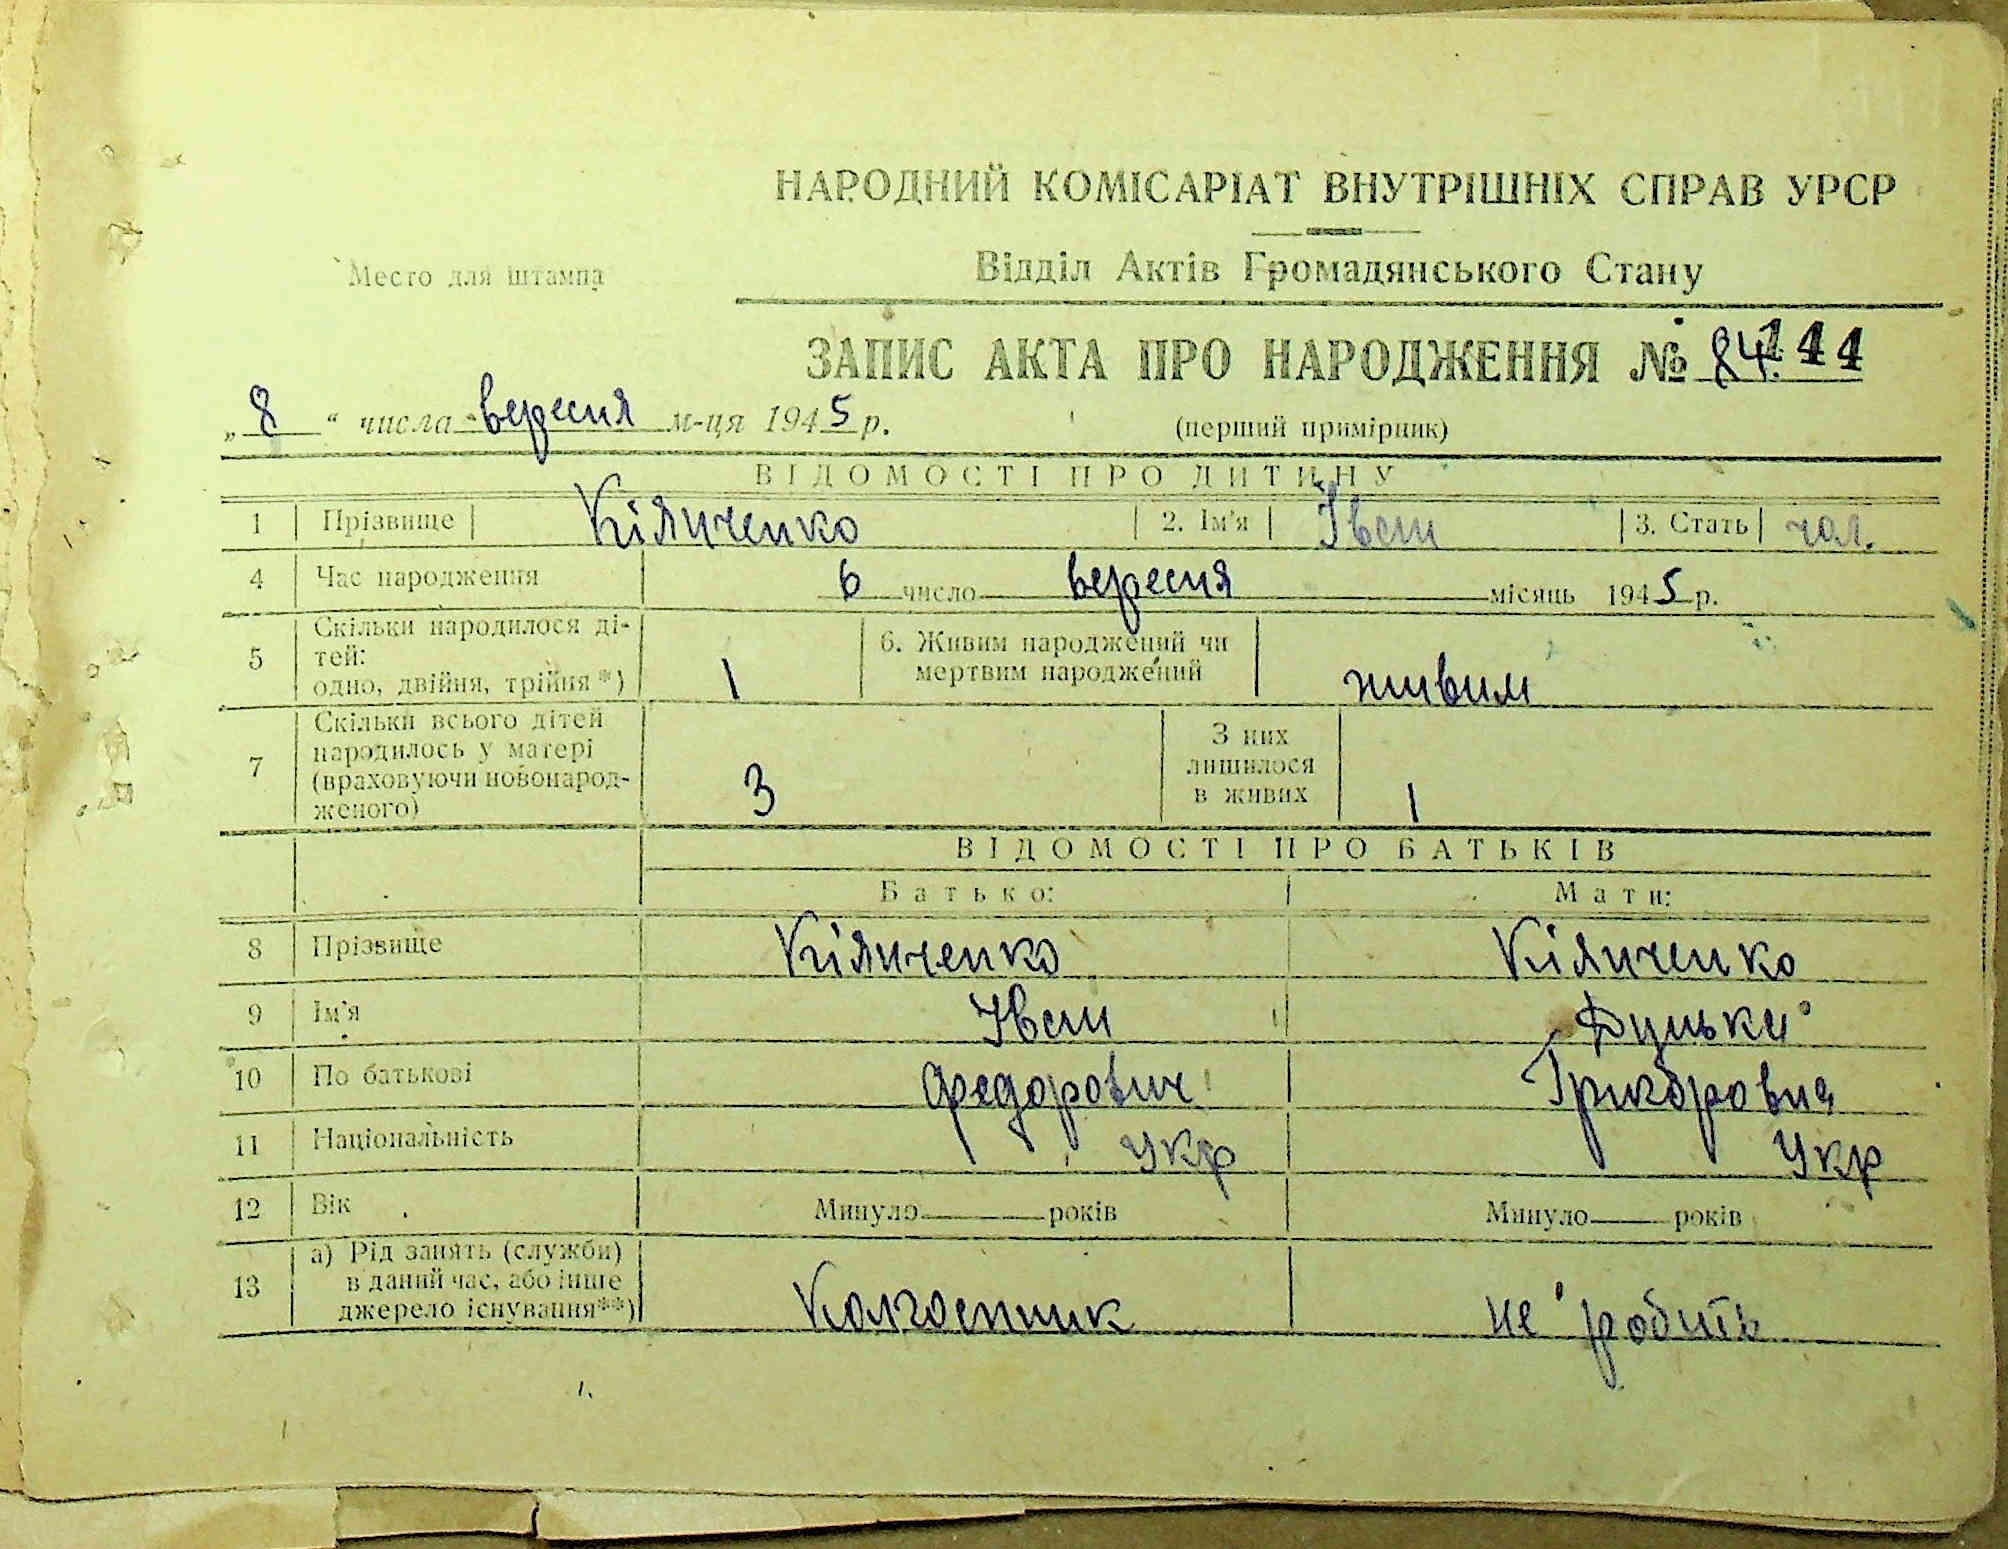 НАРОДНИЙ КОМІСАРІАТ ВНУТРІШНІХ СПРАВ УРСР
Место для штампа
Відділ Актів Громадянського Стану
ЗАПИС АКТА ПРО НАРОДЖЕННЯ № 84. 144
„ 8 “ числа вересня м-ця 1945 р.
(перший примірник)
ВІДОМОСТІ ПРО ДИТИНУ
1 Прізвище Кіяченко 2. Ім'я Іван 3. Стать чол.
4 Час народження 6 число вересня місяць 1945 р.
5 Скільки народилося ді-
тей:
одно, двійня, трійня*) 1 6. Живим народжений чи
мертвим народжений живим
7 Скільки всього дітей
народилось у матері
(враховуючи новонарод-
женого) 3 З них
лишилося
в живих 1
ВІДОМОСТІ ПРО БАТЬКІВ
Батько: Мати:
8 Прізвище Кіяченко Кіяченко
9 Ім'я Іван
10 По батькові Федорович Григоровна
11 Національність Укр Укр
12 Вік Минуло років Минуло років
13 а) Рід занять (служби)
в даний час, або інше
джерело існування**) Колгоспник не робить